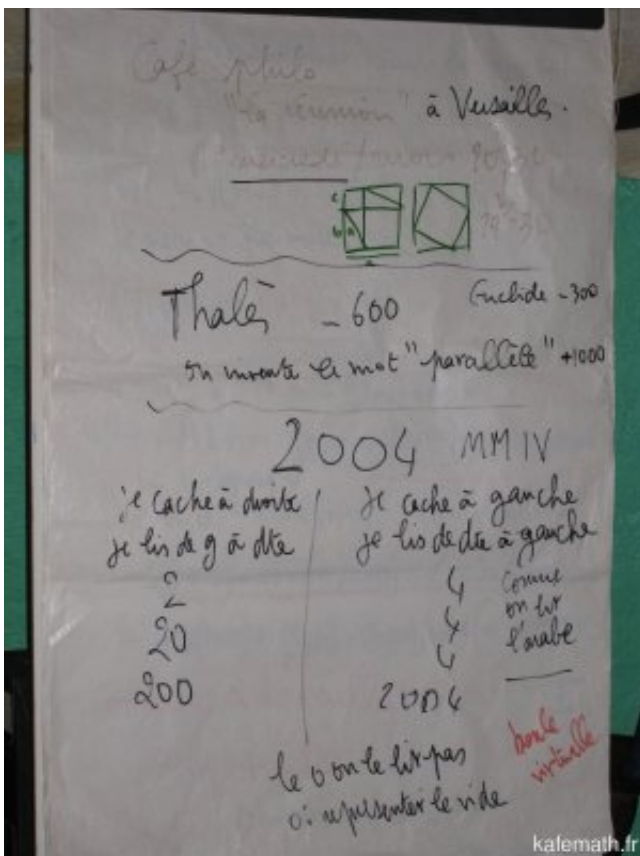 Café philo
"la réunion" à Versailles.
c
b a
a
Thalès - 600 Euclide - 300
on invente le mot "parallèle" +1000
2004 MMIV
je cache à droite
je lis de g à dte
2
20
200
je cache à gauche
je lis de dte à gauche
4
4
4
2004
comme
on lit
l'arabe
boule
virtuelle
le 0 on le lit pas
0: représenter le vide
kafemath.fr